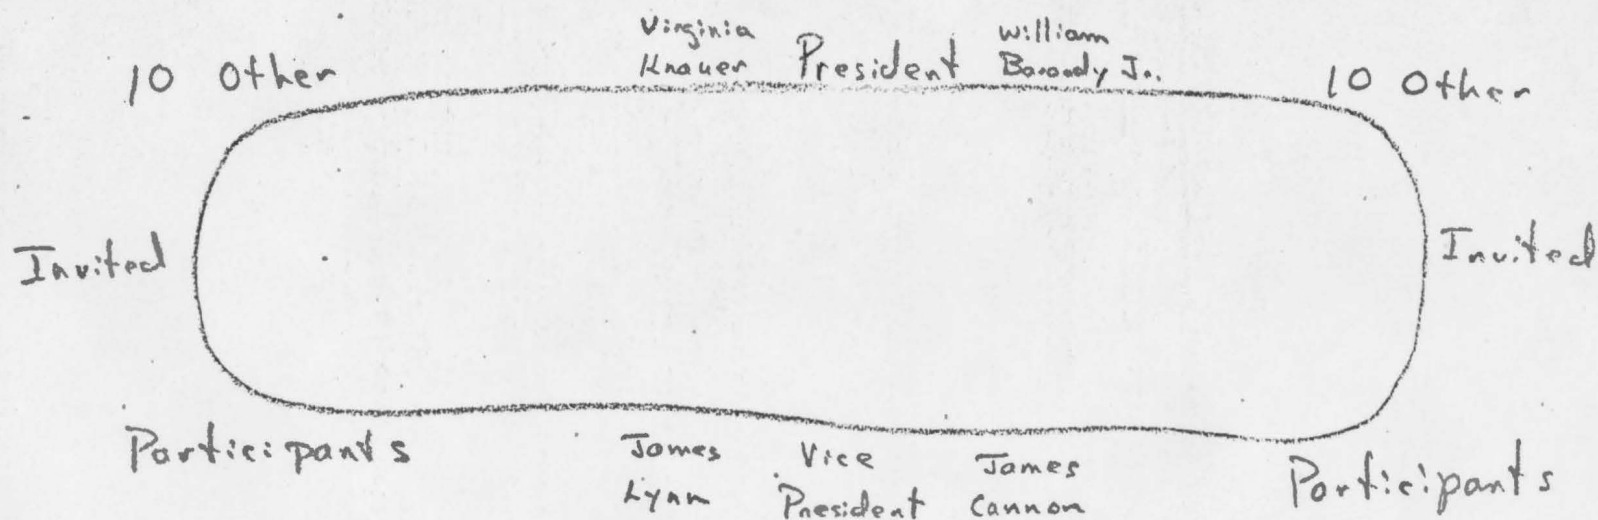 10 Other
Virginia
Knauer
President
William
Baroody Jr.
10 Other
Invited
Invited
Participants
James
Lynn
Vice
President
James
Cannon
Participants